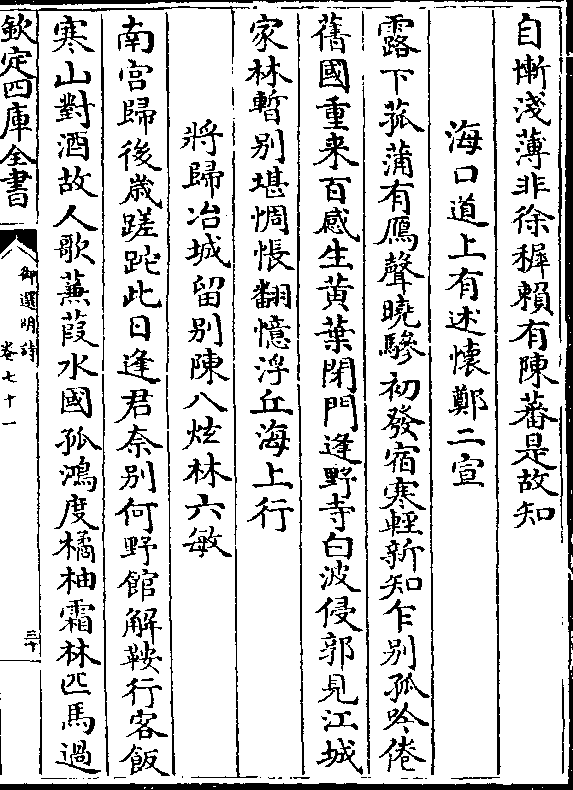 自慚淺薄非徐穉賴有陳蕃是故知
海口道上有述懷鄭二宣
露下菰蒲有鴈聲曉驂初發宿寒輕新知乍別孤吟倦
舊國重来百感生黄葉閉門逢野寺白波侵郭見江城
家林暫别堪惆悵翻憶浮丘海上行
將歸冶城留别陳八炫林六敏
南宫歸後歳蹉跎此日逢君奈别何野館解鞍行客飯
寒山對酒故人歌蒹葭水國孤鴻度橘柚霜林匹馬過
欽定四庫全書
御選明詩
卷七十一
三十